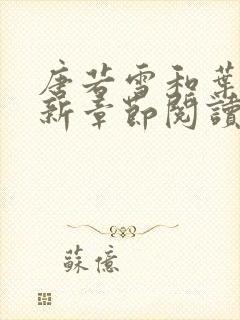 唐若雪和葉
新章節閱讀
蘇億